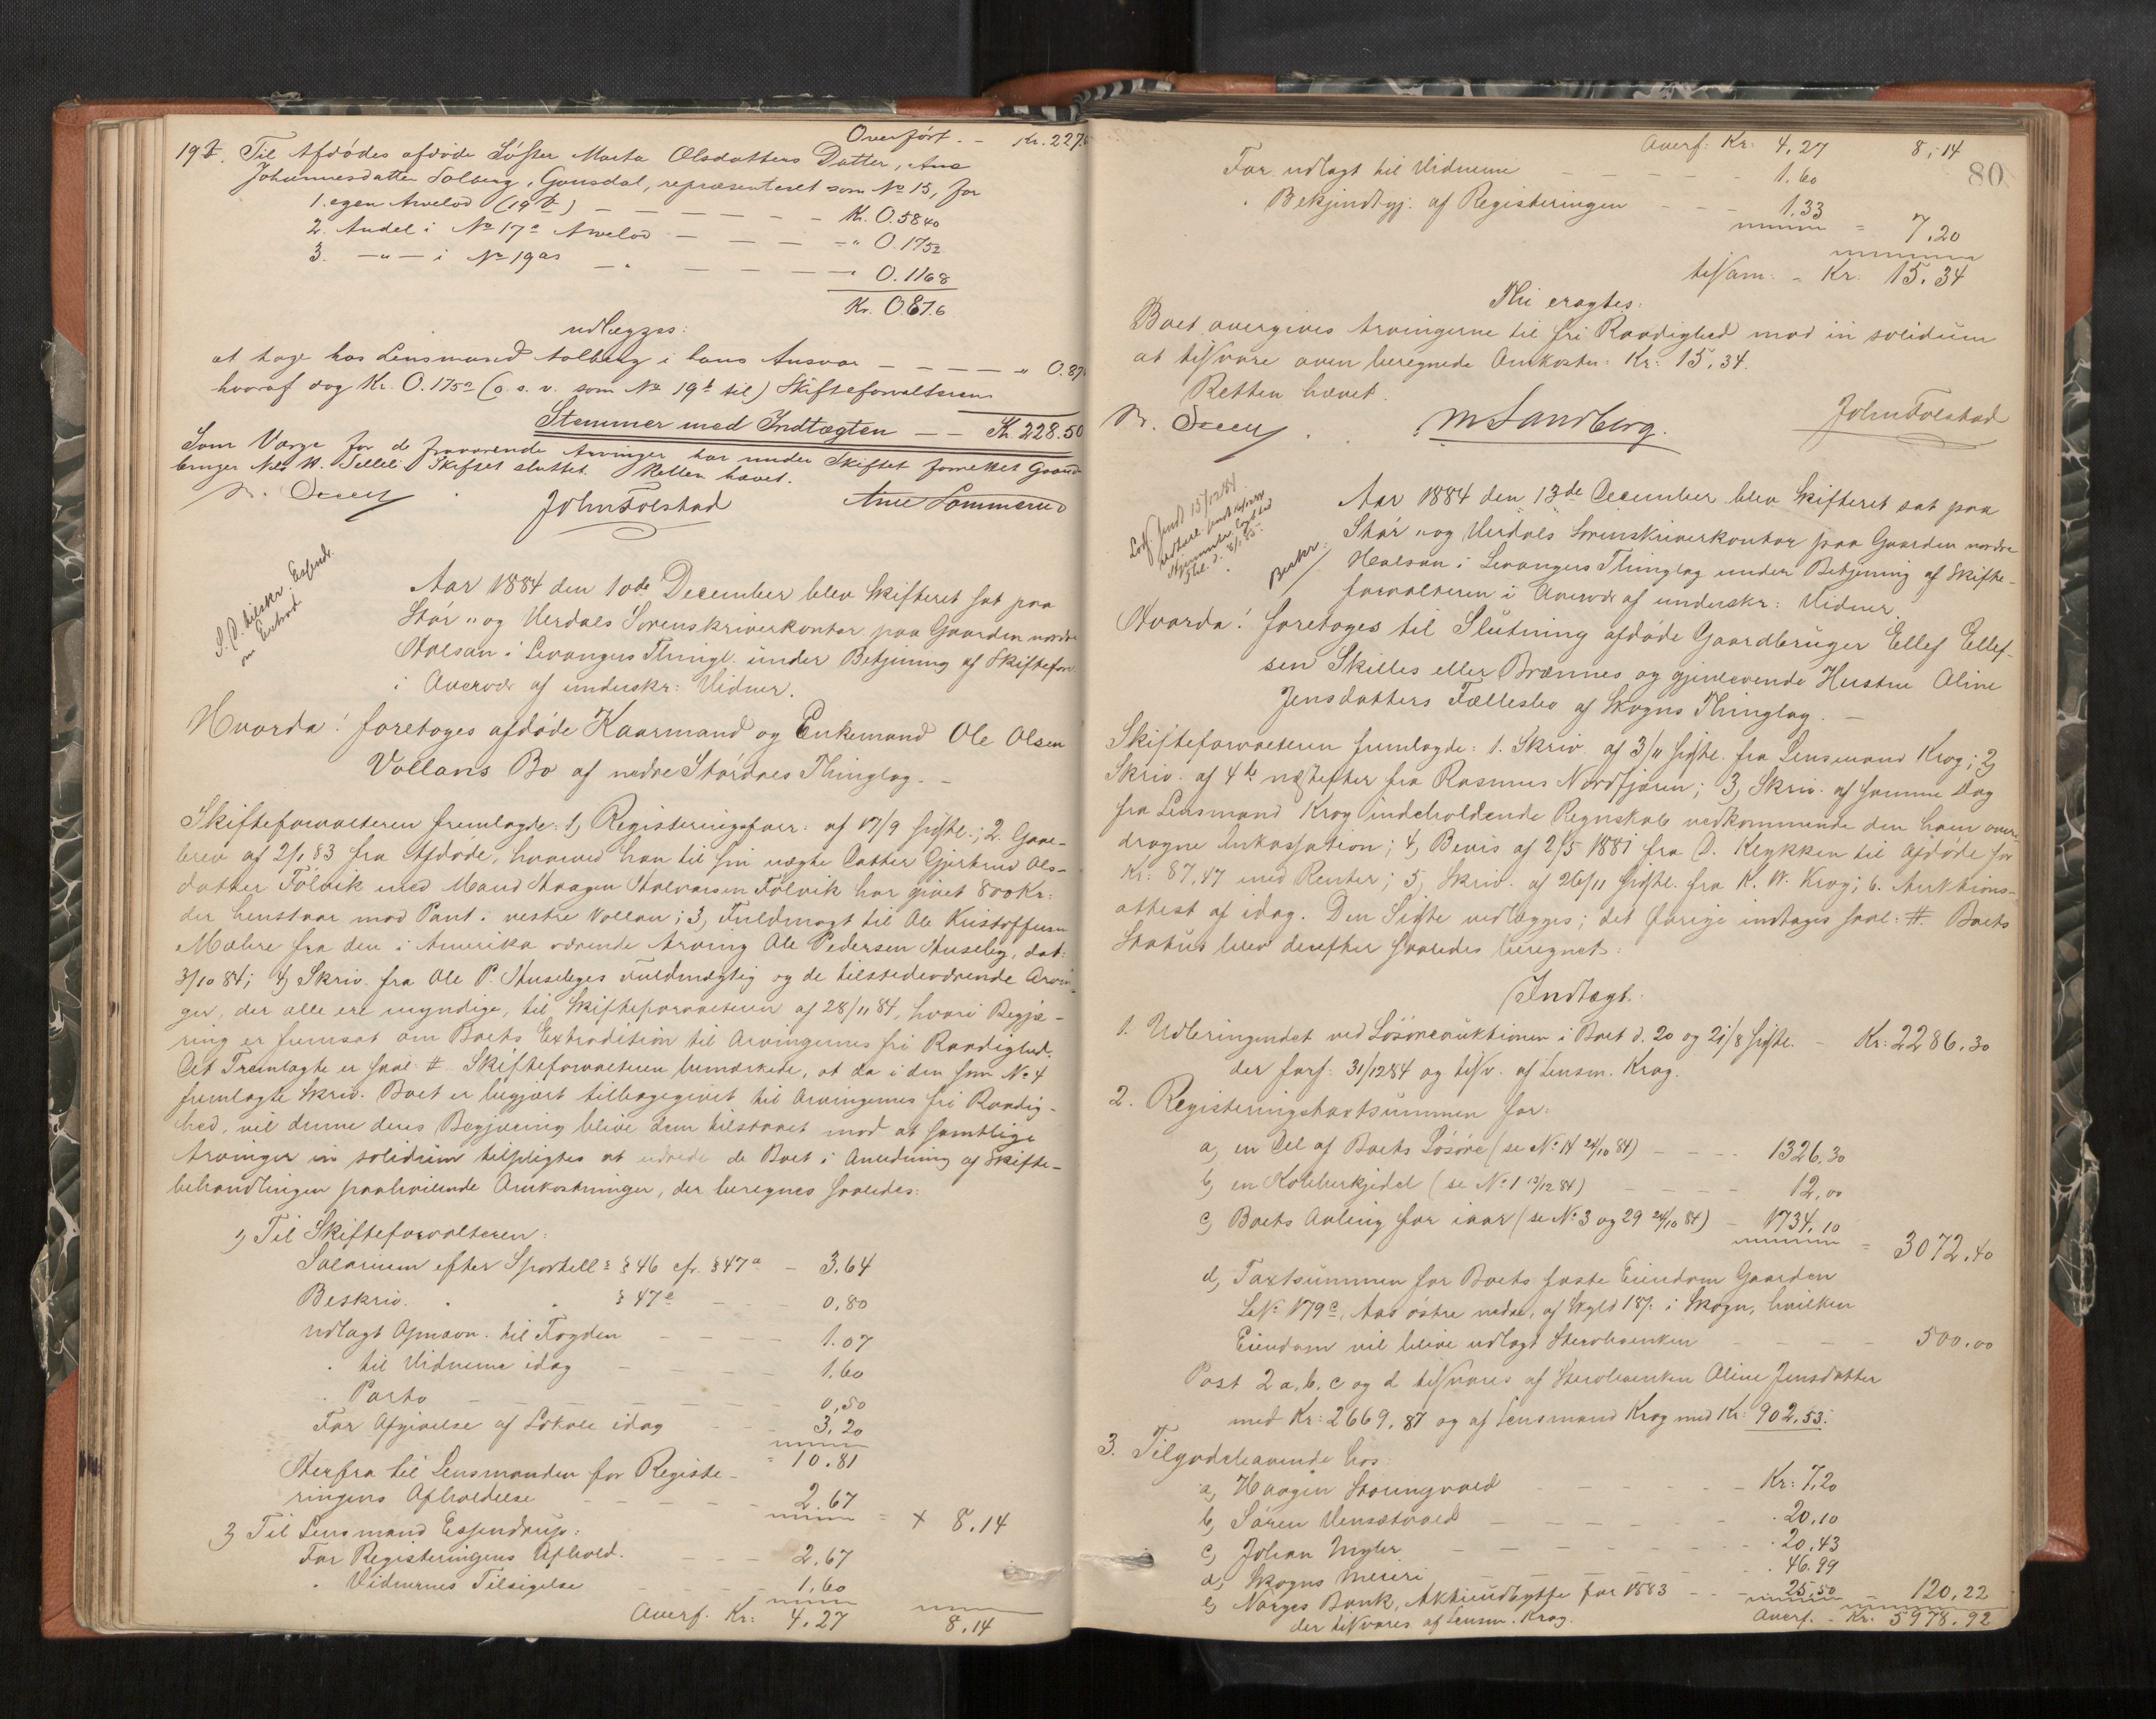 Overført. - Kr. 227.
19 b. Til Afdødes afdøde Søster Marta Olsdatters Datter, Ane
Johannesdatter Solberg, Gausdal, repræsenteret som No 15, for
1. egen Arvelod (19 b) — — — — — Kr. 0.5840
2. Andel i No 17 a Arvelod — — — — " 0.1752
3. — " — i No 19 as — — — — " 0.1168
Kr. 0.876
udlægges:
at tage hos Lensmand Solberg i hans Ansvar — — — — " 0.87
hvoraf dog Kr. 0.1752 (o. s. v. som No 19 b til) Skifteforvalteren
Stemmer med Indtægten — — Kr. 228.50
Som Værge for de fraværende Arvinger har under Skiftet forrettet Gaard-
bruger Nils W. Skiftet sluttet. Retten hævet.
John Folstad
S. D. tilskr. Essendr.
om Extrad.
Aar 1884 den 10de December blev Skifteret sat paa
Stør- og Verdals Sorenskriverkontor paa Gaarden nordre
Halsan i Levangers Thingl. under Betjening af Skiftefor.
i Overvær af underskr: Vidner.
Hvorda! foretoges afdøde Kaarmand og Enkemand Ole Olsen
Vollans Bo af nedre Størdalens Thinglag. —
Skifteforvalteren fremlagde: 1, Registeringsforr. af 17/9 sidstl.; 2. Gave-
brev af 2/1 83 fra Afdøde, hvorved han til sin uægte Datter Gjertrud Ols-
datter Følvik med Mand Haagen Halvorsen Følvik har givet 800 Kr.
der henstaar mod Pant i vestre Vollan; 3, Fuldmagt til Ole Kristoffersen
Mæhre fra den i Amerika værende Arving Ole Pedersen Huseby, dat:
3/10 84; 4, Skriv. fra Ole P. Husebyes Fuldmægtig og de tilstedeværende Arvin-
ger, der alle ere myndige, til Skifteforvalteren af 28/11 84, hvori Begjæ-
ring er fremsat om Boets Extradition til Arvingernes fri Raadighed.
Det Fremlagte er saal: #. Skifteforvalteren bemærkede, at da i den som No 4
fremlagte Skriv. Boet er begjært tilbagegivet til Arvingernes fri Raadig-
hed, vil denne deres Begjæring blive dem tilstaaet mod at samtlige
Arvinger in solidum tilpligtes at udrede de Boet i Anledning af Skifte-
behandlingen paahvilende Omkostninger, der beregnes saaledes:
1) Til Skifteforvalteren:
Salarium efter Sportell: § 46 cfr. § 47 a — 3.64
Beskriv. " § 47 c — 0,80
Udlagt Opnavn. til Fogden — 1.07
" til Vidnerne idag — 1.60
" Porto — 0,50
For Afgivelse af Lokale idag — 3,20
= 10.81
Herfra til Lensmanden for Registe-
ringens Afholdelse — 2.67 = + 8.14
2) Til Lensmand Essendrup:
For Registeringens Afhold. — 2.67
" Vidnernes Tilsigelse — 1,60
Overf. Kr: 4.27 8.14
Overf: Kr: 4,27 8,14
80
For udlagt til Vidnerne — 1.60
" Bekjendtgj: af Registeringen — 1,33 = 7.20
tilsam: - Kr. 15.34
Thi eragtes:
Boet overgives Arvingerne til fri Raadighed mod in solidum
at tilsvare oven beregnede Omkostn: Kr: 15,34.
Retten hævet.
M Sandberg. John Folstad
Beskr:
Aar 1884 den 13de December blev Skifteret sat paa
Stør- og Verdals Sorenskriverkontor paa Gaarden nordre
Halsan i Levangers Thinglag under Betjening af Skifte-
forvalteren i Overvær af underskr: Vidner.
Hvorda! foretoges til Slutning afdøde Gaardbruger Ellef Ellef-
sen Skilles eller Brænnes og gjenlevende Hustru Oline
Jensdatters Fællesbo af Skogns Thinglag. —
Skifteforvalteren fremlagde: 1. Skriv. af 3/11 sidstl. fra Lensmand Krog; 2,
Skriv. af 4de næstefter fra Rasmus Nordfjæren; 3, Skriv. af samme Dag
fra Lensmand Krog indeholdende Regnskab vedkommende den ham over-
dragne Inkassation; 4, Bevis af 2/5 1881 fra O. Klykken til Afdøde for
Kr: 87,47 med Renter; 5, Skriv. af 26/11 sidstl. fra K. W. Krog; 6. Auktions-
attest af idag. Den Sidste vedlægges; det Øvrige indtages saal: #. Boets
Status blev derefter saaledes beregnet:
Indtægt.
1. Udbringendet ved Løsøreauktionen i Boet d. 20 og 21/8 sidstl. - Kr: 2286.30
der forf: 31/12 84 og tilsv. af Lensm. Krog.
2. Registeringstaxtsummen for:
a, en Del af Boets Løsøre (se No 14 24/10 84) — 1326,30
b, en Kobberkjedel (se No 1 13/12 84) — 12,00
c, Boets Avling for iaar (se No 3 og 29 24/10 84) — 1734,10 = 3072.40
d, Taxtsummen for Boets faste Eiendom Gaarden
LNo 179 c, Aas østre nedre, af Skyld 18 β. i Skogn, hvilken
Eiendom vil blive udlagt Sterboenken — 500.00
Post 2 a, b, c og d tilsvares af Sterboenken Oline Jensdatter
med Kr: 2669,87 og af Lensmand Krog med Kr: 902,53.
3. Tilgodehavende hos:
a, Haagen — Kr: 7,20
b, Søren — 20,10
c, Johan — 20,43
d, Skogns Meieri — 46.99
e, Norges Bank, Aktieudbytte for 1883 — 25,50 = 120,22
der tilsvares af Lensm. Krog. Overf. - Kr. 5978.92